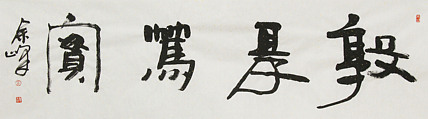 敦厚篤實